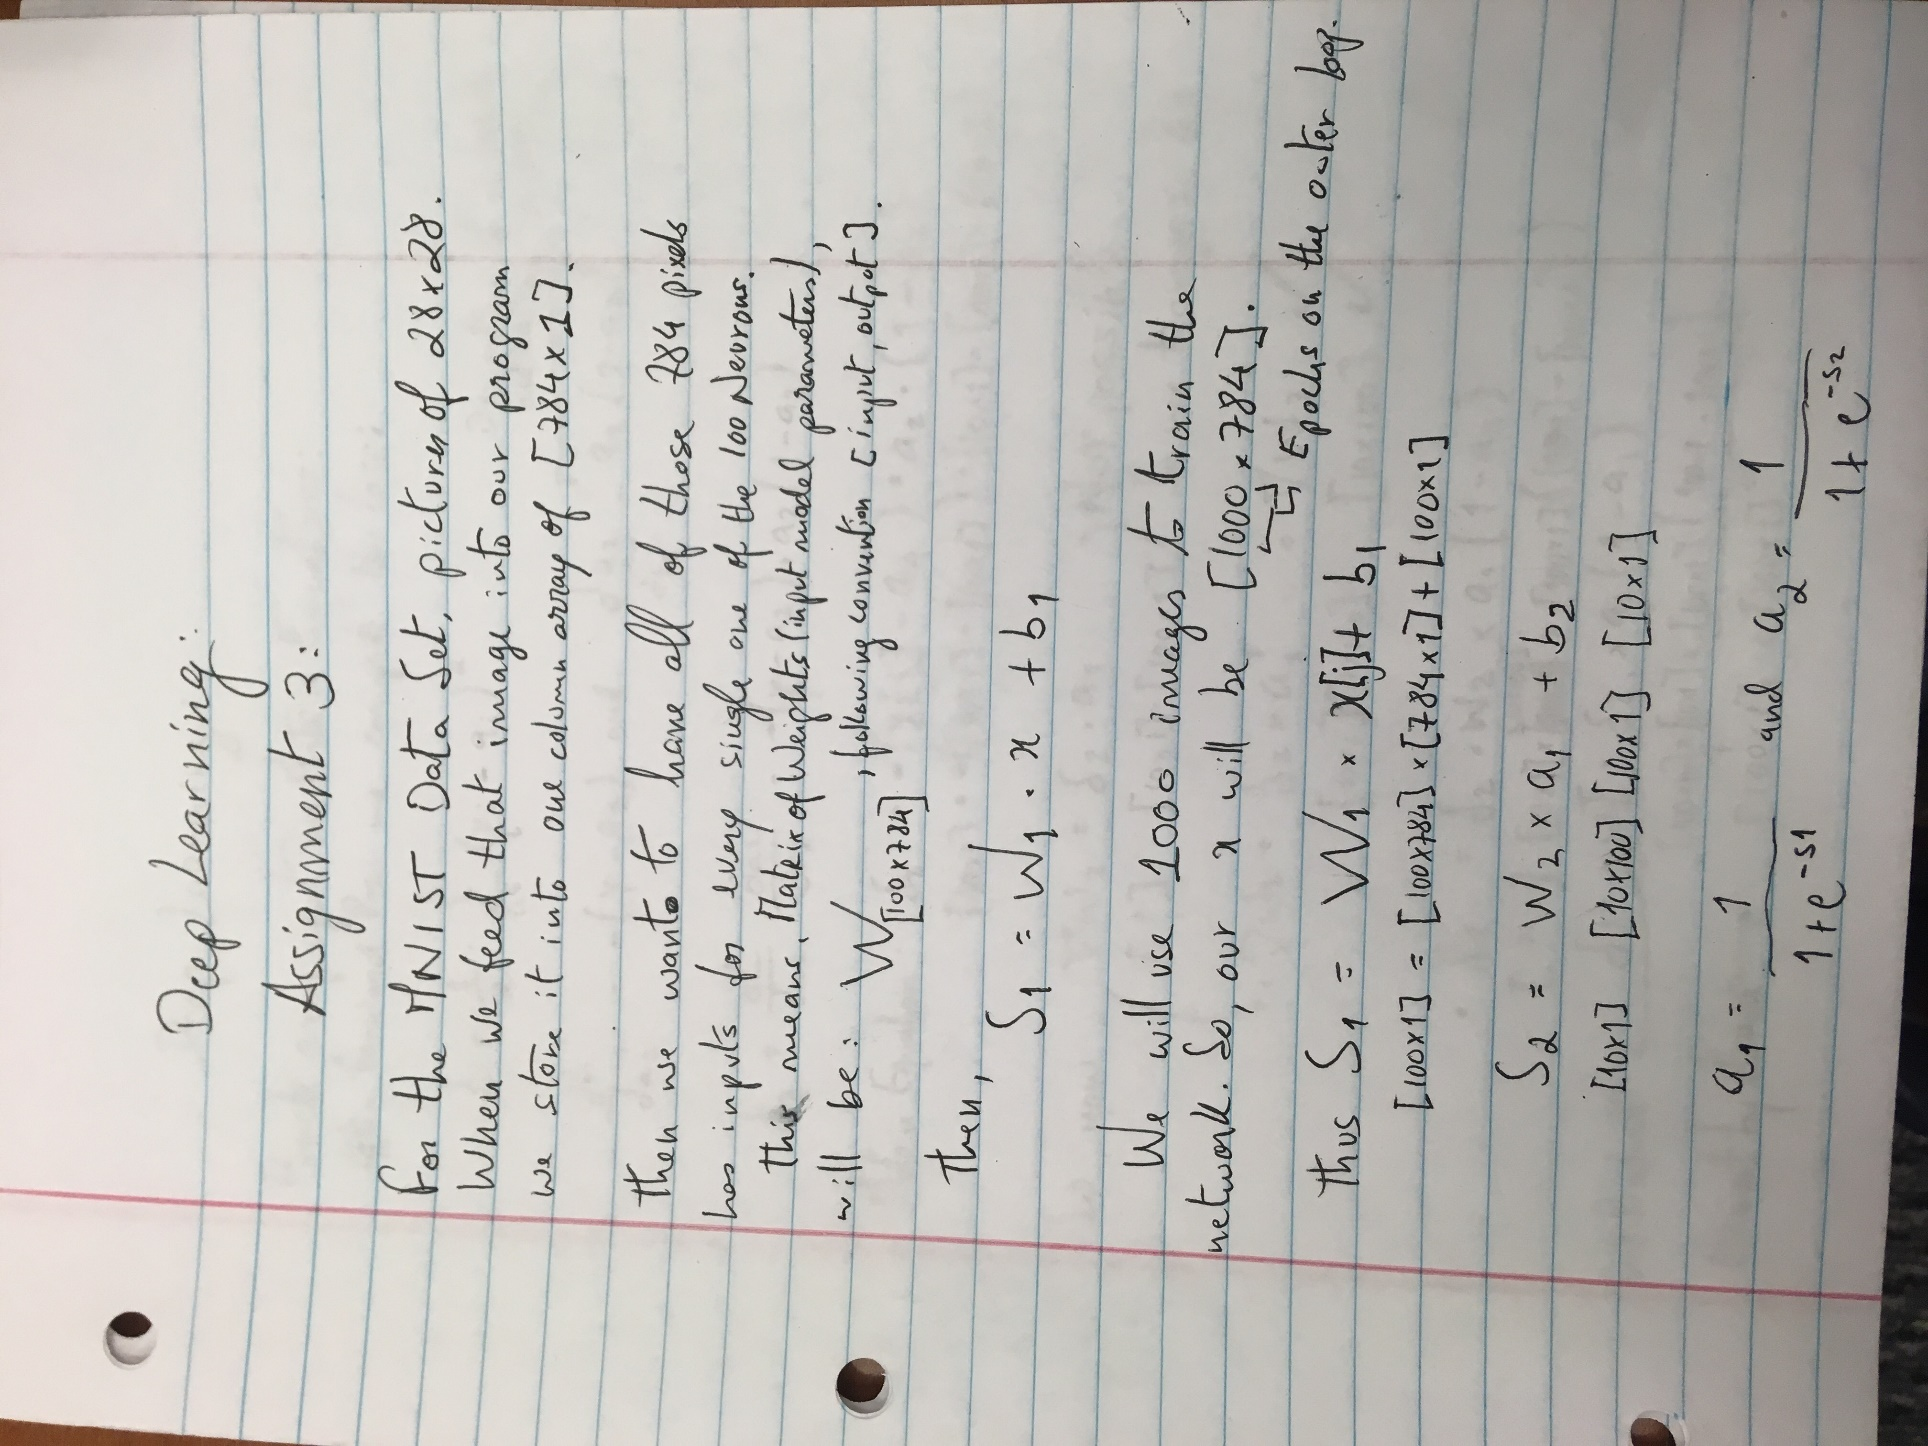 Deep Learning:
Assignment 3:
For the MNIST Data Set, pictures of 28x28.
When we feed that image into our program
we store it into one column array of [784x1].
then we want to have all of those 784 pixels
has inputs for every single one of the 100 Neurons.
this means, Matrix of Weights (input model parameters),
will be: W[100x784] , following convention [input, output].
then,
S1 = W1 · x + b1
We will use 1000 images to train the
network. So, our x will be [1000x784].
Epochs on the outer loop.
thus S1 = W1 × x[j] + b1
[100x1] = [100x784] × [784x1] + [100x1]
S2 = W2 × a1 + b2
[10x1] [10x100] [100x1] [10x1]
a1 = 1/(1+e^-S1) and a2 = 1/(1+e^-S2)